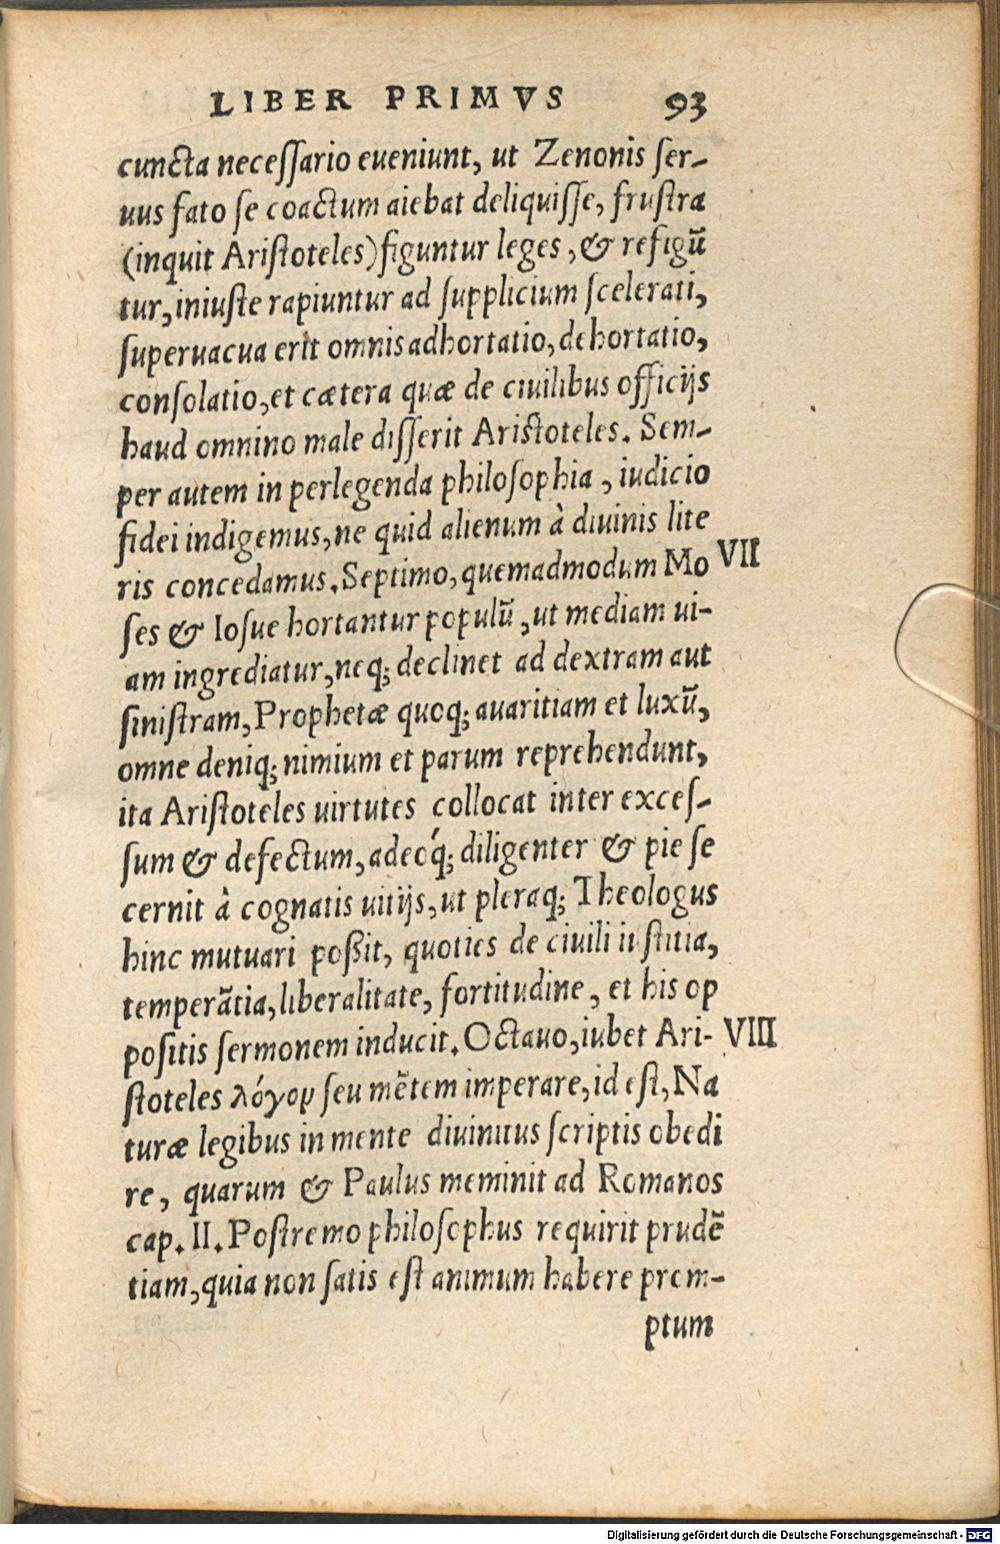 LIBER PRIMVS 93
cuncta necessario eueniunt, ut Zenonis ser-
uus fato se coactum aiebat deliquisse, frustra
(inquit Aristoteles) figuntur leges, & refigū
tur, iniuste rapiuntur ad supplicium scelerati,
superuacua erit omnis adhortatio, dehortatio,
consolatio, et cætera quæ de ciuilibus officijs
haud omnino male disserit Aristoteles. Sem-
per autem in perlegenda philosophia, iudicio
fidei indigemus, ne quid alienum à diuinis lite
ris concedamus. Septimo, quemadmodum Mo VII
ses & Iosue hortantur populū, ut mediam ui-
am ingrediatur, neq; declinet ad dextram aut
sinistram, Prophetæ quoq; auaritiam et luxū,
omne deniq; nimium et parum reprehendunt,
ita Aristoteles uirtutes collocat inter exces-
sum & defectum, adeoq́; diligenter & pie se
cernit à cognatis uitijs, ut pleraq; Theologus
hinc mutuari poßit, quoties de ciuili iustitia,
temperātia, liberalitate, fortitudine, et his op
positis sermonem inducit. Octauo, iubet Ari- VIII
stoteles λόγον seu mētem imperare, id est, Na
turæ legibus in mente diuinitus scriptis obedi
re, quarum & Paulus meminit ad Romanos
cap. II. Postremo philosophus requirit prudē
tiam, quia non satis est animum habere prom-
ptum
Digitalisierung gefördert durch die Deutsche Forschungsgemeinschaft - DFG